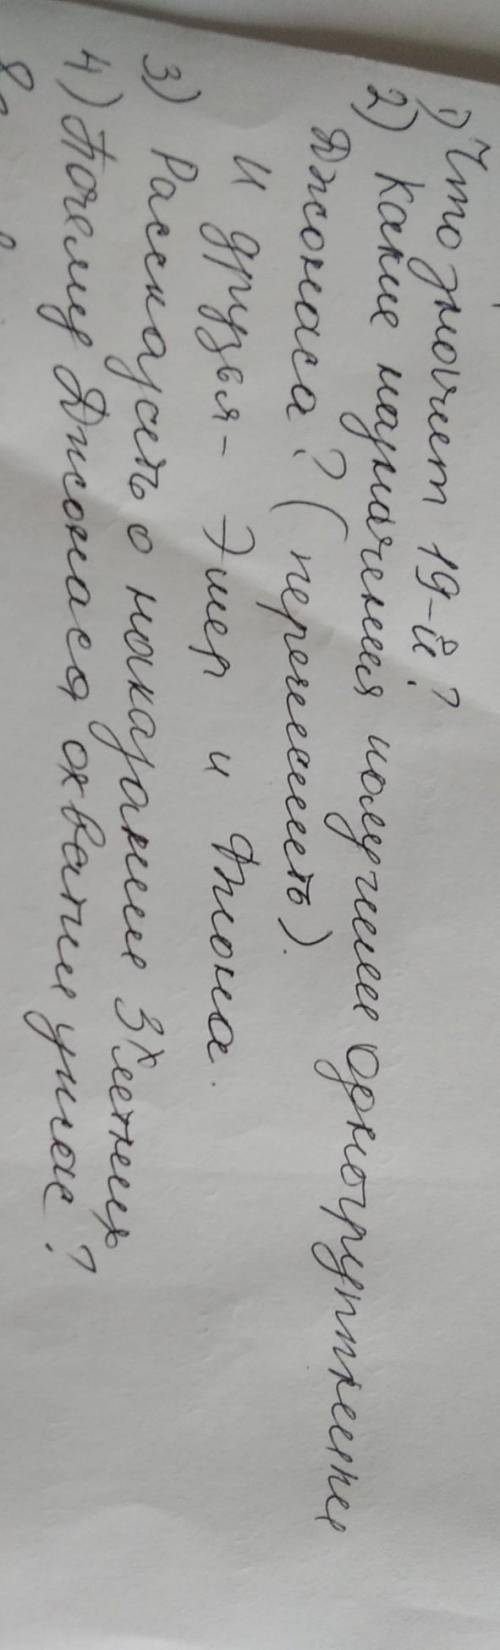 1) Что значит 19-й?
2) Какие назначения получили одногруппники
Джонаса? (перечислить).
И друзья - Эшер и Фиона.
3) Рассказать о наказании 3х летних
4) Почему Джонаса охватил ужас?